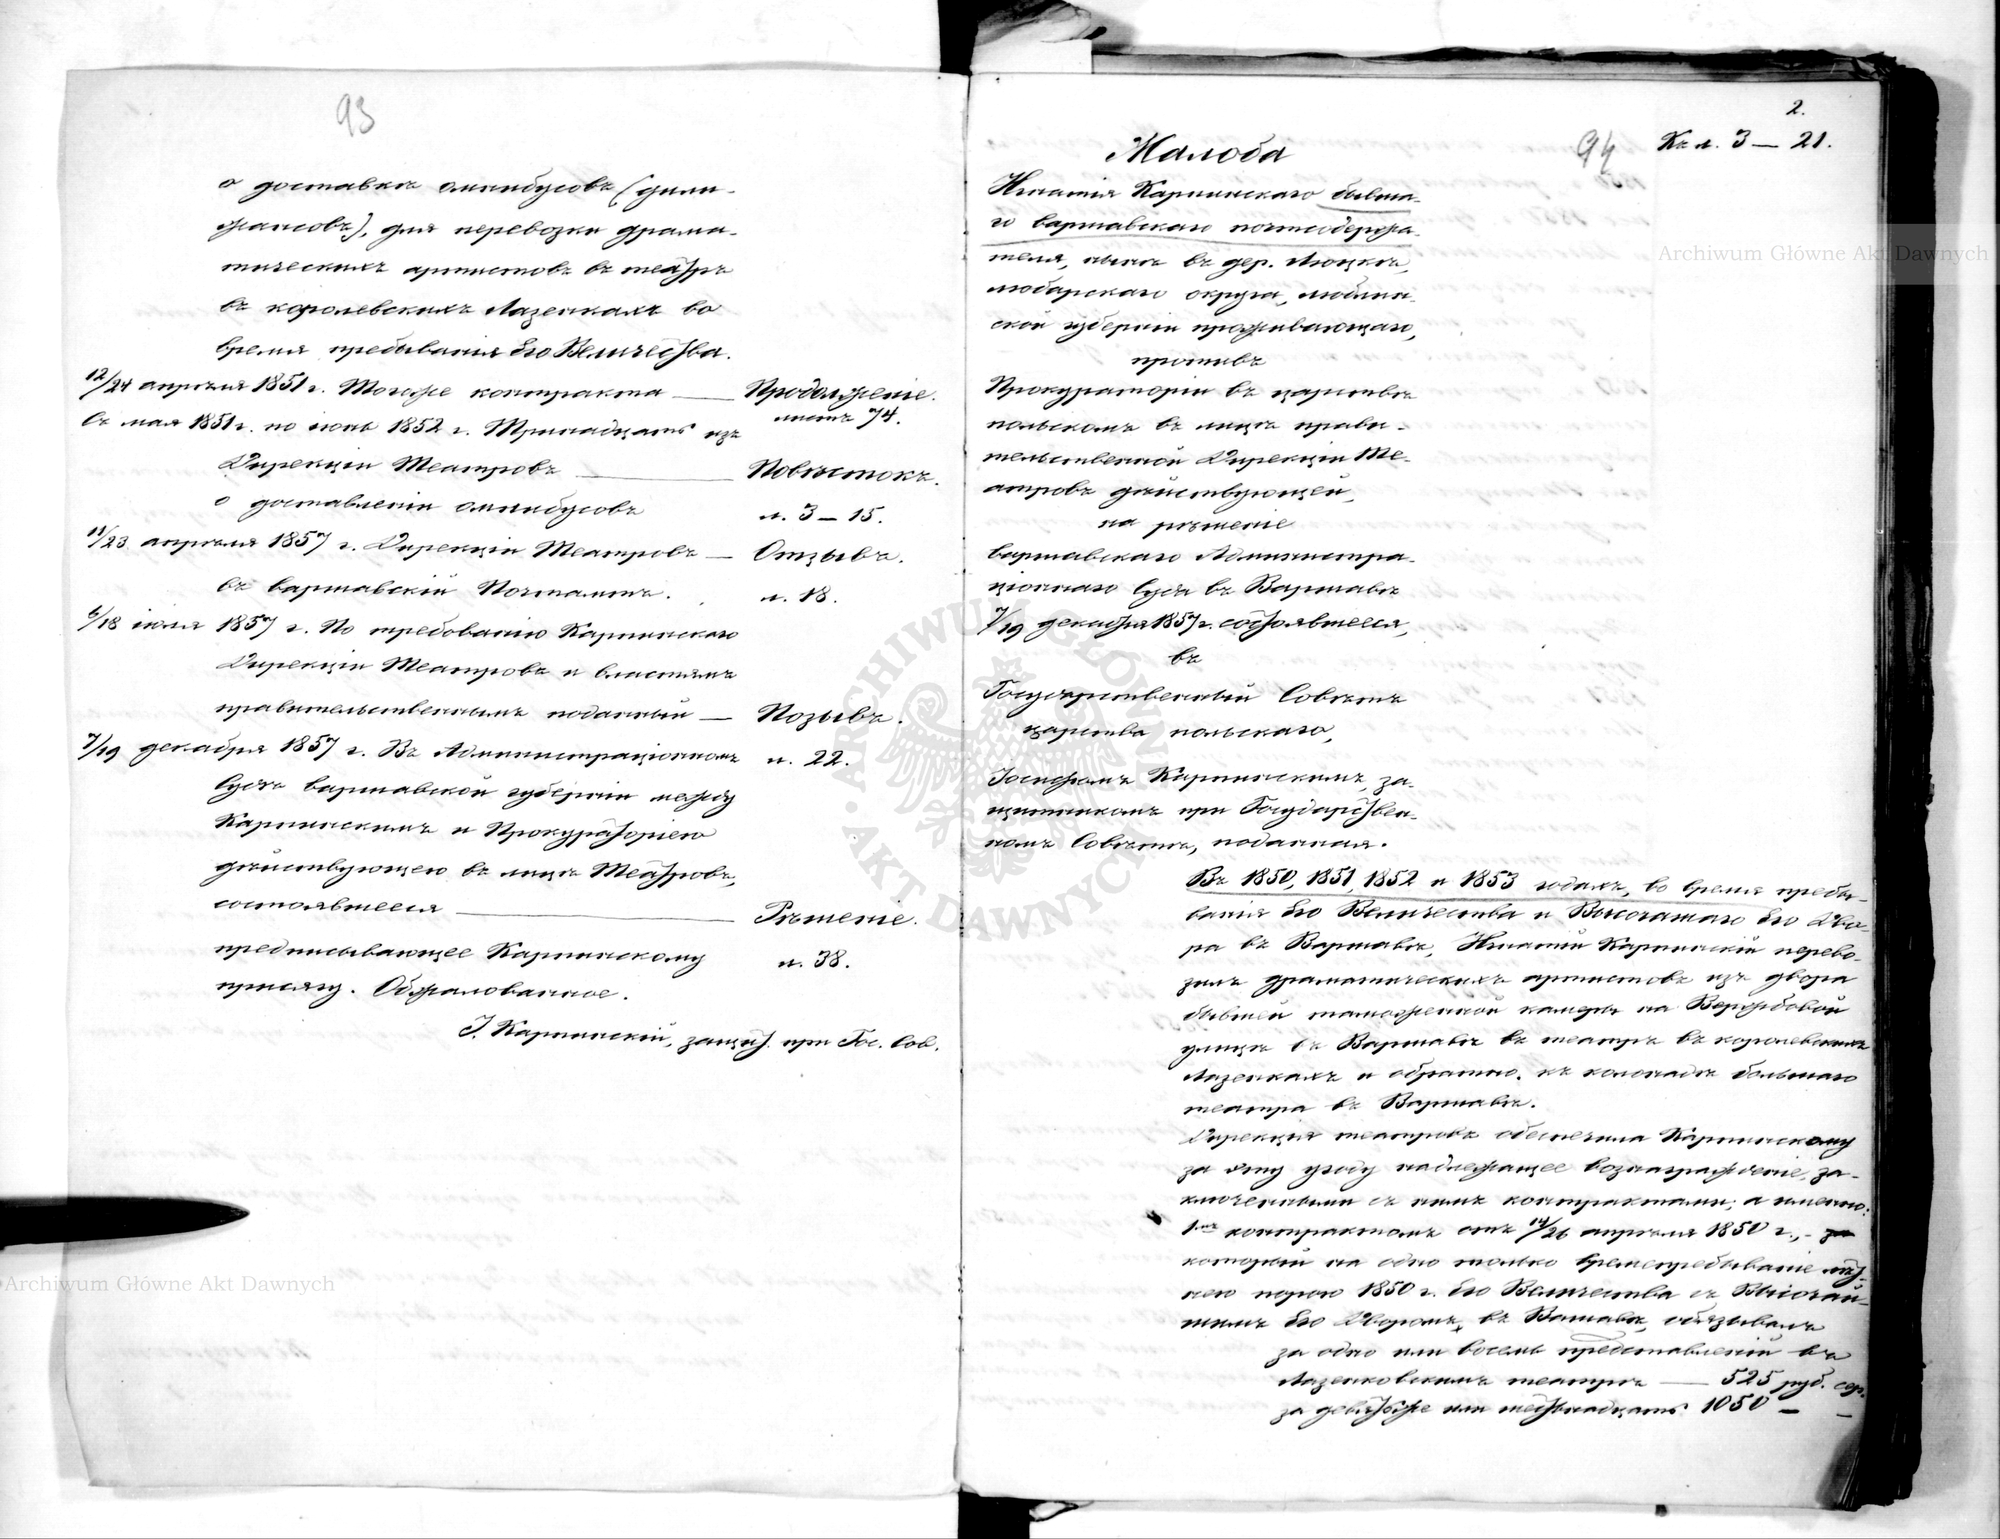 93
о доставкѣ омнибусовъ (дили-
жансовъ), для перевозки драма-
тическихъ артистовъ въ театръ
въ королевскихъ Лазенкахъ во
время пребыванія Его Величества.
12/24 апрѣля 1851 г. Тогоже контракта — Продолженіе.
листъ 74.
въ мая 1851 г. по іюнь 1852 г. Тринадцать изъ
Дирекціи Театровъ — Повѣстокъ.
о доставленіи омнибусовъ л. 3 – 15.
11/23 апрѣля 1857 г. Дирекціи Театровъ — Отзывъ.
въ варшавскій Почтамтъ. л. 18.
6/18 іюля 1857 г. По требованію Карпинскаго
Дирекціи Театровъ и властямъ
правительственнымъ поданный — Позывъ.
7/19 декабря 1857 г. Въ Административномъ л. 22.
Судѣ варшавской губерніи между
Карпинскимъ и Прокураторіею
дѣйствующею въ лицѣ Театровъ,
состоявшееся — Рѣшеніе.
предписывающее Карпинскому л. 38.
присягу. Обжалованное.
І. Карпинскій, защит. при Гос. Сов.
2.
94
Къ л. 3 — 21.
Жалоба
Игнатія Карпинскаго бывша-
го варшавскаго почтсодержа-
теля, нынѣ въ дер.
округа, люблин-
ской губерніи проживающаго,
противъ
Прокураторіи въ царствѣ
польскомъ въ лицѣ прави-
тельственной Дирекціи Те-
атровъ дѣйствующей,
на рѣшеніе
варшавскаго Администра-
ціоннаго Суда въ Варшавѣ
7/19 декабря 1857 г. состоявшееся,
въ
Государственный Совѣтъ
царства польскаго,
Іосифомъ Карпинскимъ, за-
щитникомъ при Государствен-
номъ Совѣтѣ, поданная.
Въ 1850, 1851, 1852 и 1853 годахъ, во время пребы-
ванія Его Величества и Высочашаго Его Дво-
ра въ Варшавѣ, Игнатій Карпинскій перево-
зилъ драматическихъ артистовъ изъ двора
бывшей таможенной камеры на Вержбовой
улицѣ въ Варшавѣ въ театръ въ королевскихъ
Лазенкахъ и обратно, къ колонадѣ большаго
театра въ Варшавѣ.
Дирекція театровъ обеспечила Карпинскому
за эту узоду надлежащее вознагражденіе, за-
ключенными съ нимъ контрактами; а именно:
1мъ контрактомъ отъ 14/26 апрѣля 1850 г.,
который на одно только времепребываніе лѣт-
нею порою 1850 г. Его Величества съ Высочай-
шимъ Его Дворомъ, въ Вашавѣ, обязывалъ
за одно или восемь представленій въ
Лазенковскимъ театрѣ — 525 руб. сер.
за девятоже или шестьнадцать 1050 — —